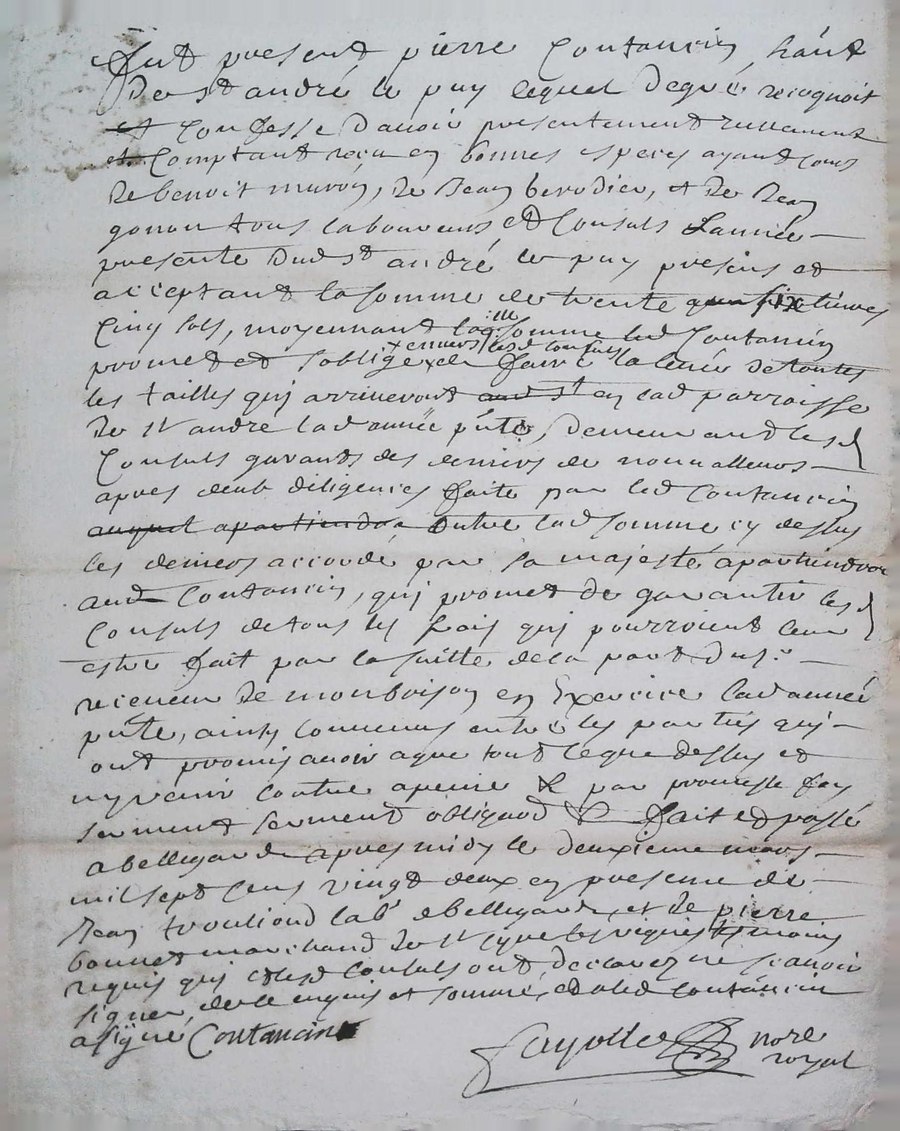 fut present pierre Contancin, hant
De st andré le puy lequel de gré recognoit
et Confesse d'avoir presentement reellement
et Comptant reçu en bonnes especes ayant cours
De benoit muron, De Jean berodier, et De Jean
gonon tous laboureurs et Consuls L'année
presente Dud st andré le puy presens et
acceptant la somme de trente six livres
Cinq sols, moyennant laq.lle somme led Contancin
promet et soblige x de faire la levée de toutes
x envers lesd consuls
les tailles qui arriveront en lad parroisse
De st andre lad année pnte, Demeurant lesd
Consuls garands des deniers de nonvalleurs
apres deub diligences faite par led Contancin
auquel apartiendra outre lad somme cy dessus
les deniers accordé par sa majesté apartiendron
aud Contancin, qui promet de garantir lesd
Consuls de tous les frais qui pourroient leur
estre fait par la suitte de la part du sr
receveur De monbrison en Exercice lad année
pnte, ainsy convenus entre les parties qui
ont promis avoir agreé tout ce que dessus et
ny venir contre a peine & par promesse foy
serment serment obligaon & fait et passé
a bellegarde apres midy le deuxieme mars
mil sept cens vingt deux en presence de
Jean trouliond labr a bellegarde, et de pierre
bonnet marchand De st Cyre les vignes temoins
requis qui et lesd Consuls ont declarez ne scavoir
signer, de ce enquis et sommé, et led Contancin
a signé Contancin
fayolle nore
royal